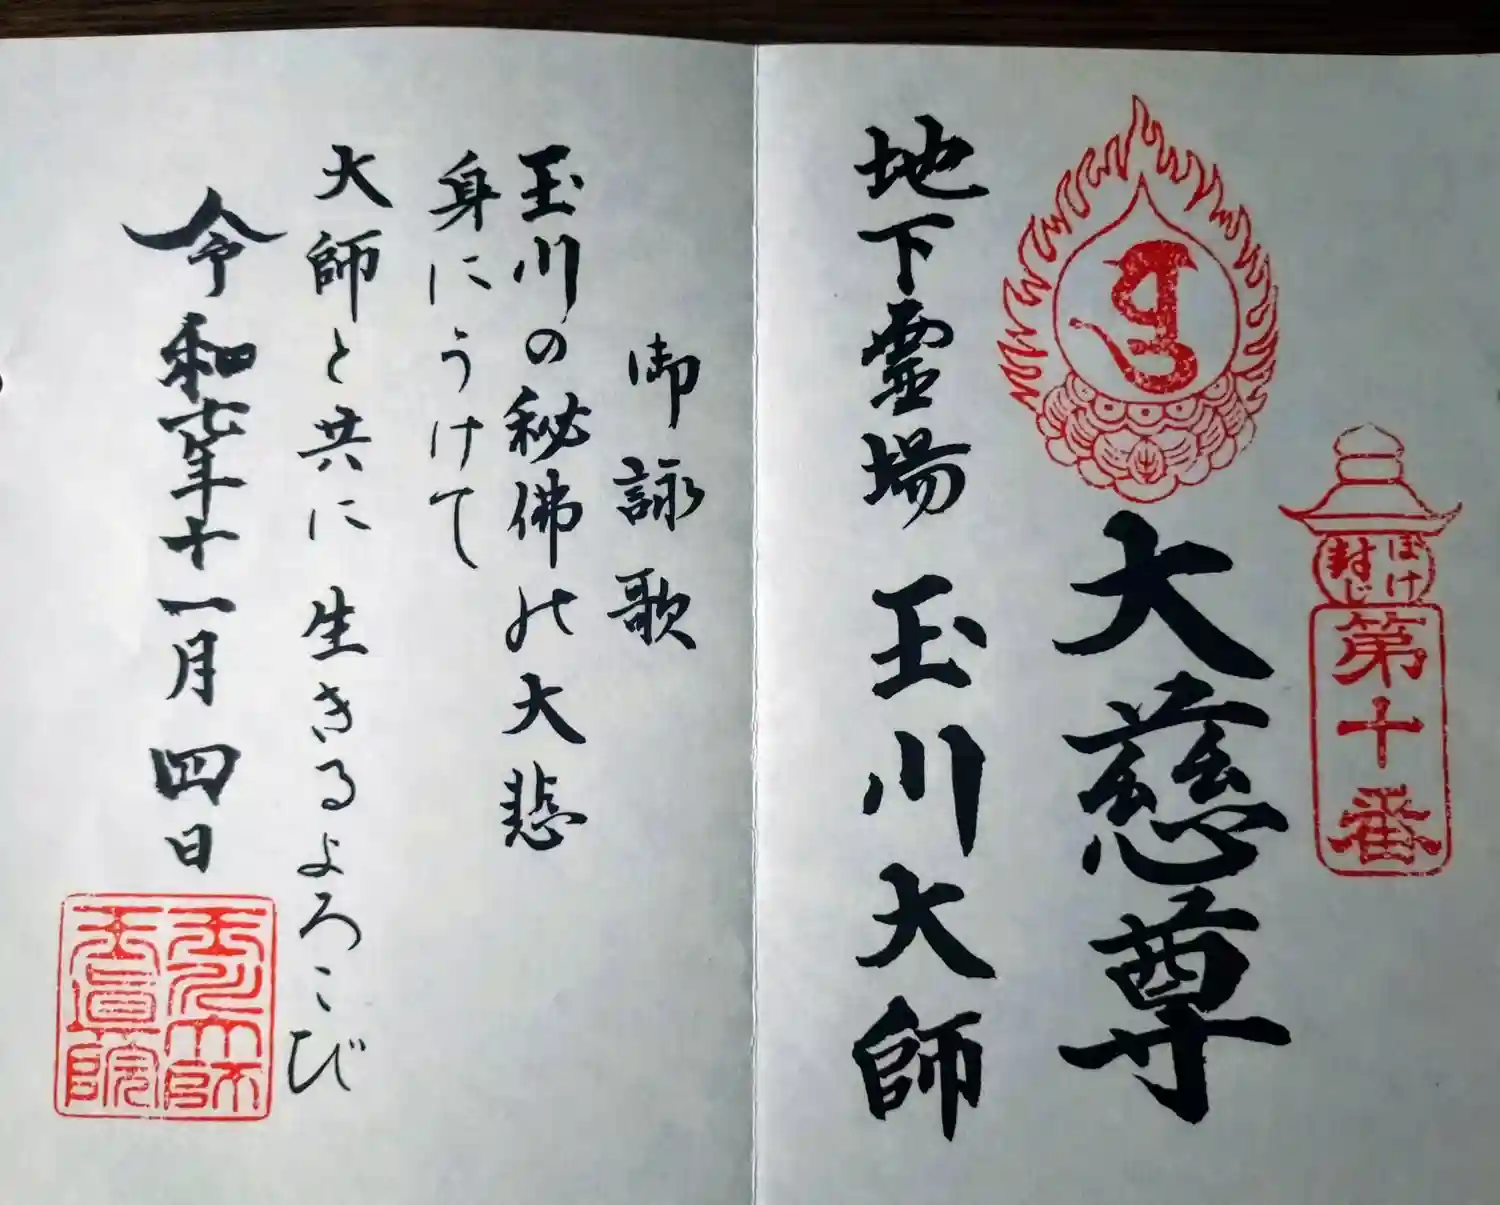 ぼけ
封じ
第十番
大慈尊
地下霊場 玉川大師
御詠歌
玉川の秘佛の大悲
身にうけて
大師と共に生きるよろこび
令和七年十一月四日
玉川大師
玉眞院